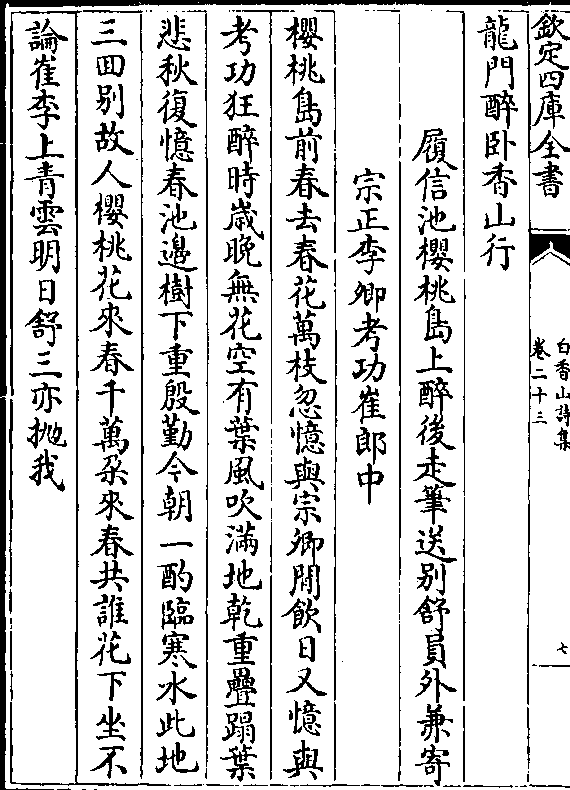 欽定四庫全書
白香山詩集
卷二十三
七
龍門醉卧香山行
履信池櫻桃島上醉後走筆送别舒員外兼寄
宗正李卿考功崔郎中
櫻桃島前春去春花萬枝忽憶與宗卿閒飲日又憶與
考功狂醉時歳晚無花空有葉風吹滿地乾重疊蹋葉
悲秋復憶春池邊樹下重殷勤今朝一酌臨寒水此地
三回别故人櫻桃花來春千萬朶來春共誰花下坐不
論崔李上青雲明日舒三亦抛我